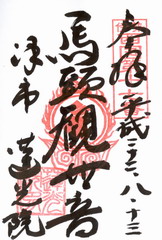 奉拝 平成二三、八、十三
馬頭観世音
津市 蓮光院